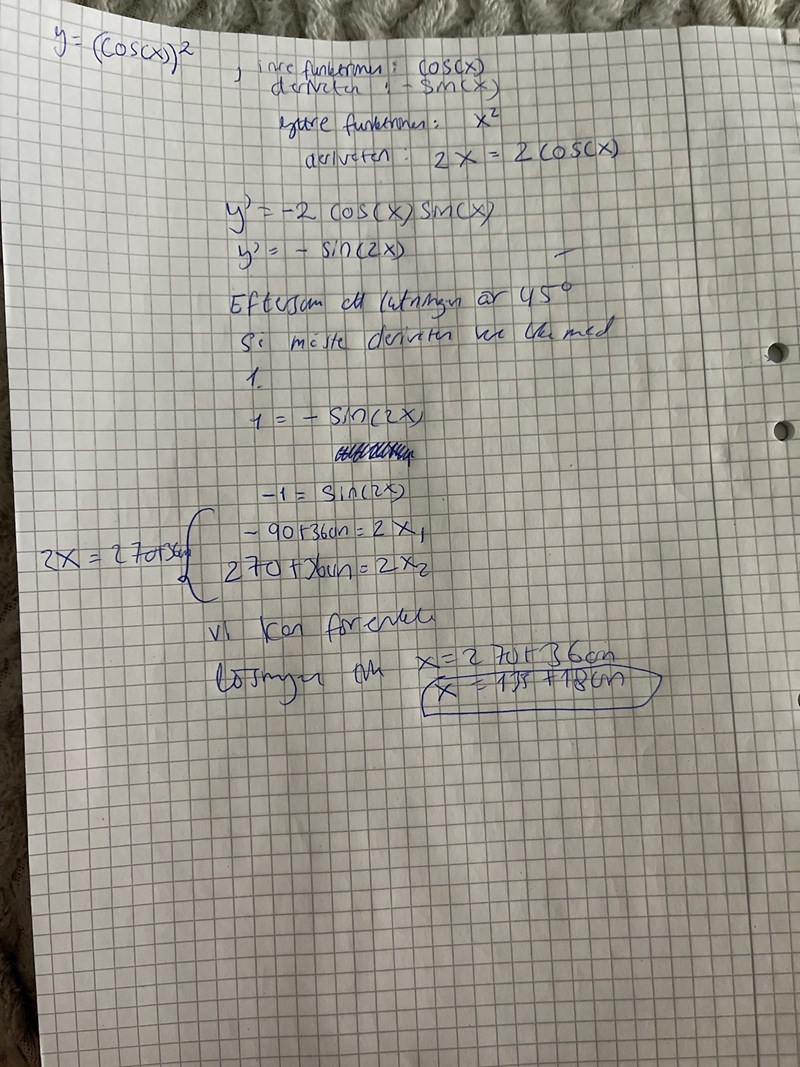 y = (cos(x))²
, inre funktionen: cos(x)
derivatan : - sin(x)
yttre funktionen: x²
derivatan: 2x = 2 cos(x)
y' = -2 cos(x) sin(x)
y' = - sin(2x)
Eftersom att lutningen är 45°
så måste derivatan vara lika med
1.
1 = - sin(2x)
-1 = sin(2x)
- 90+360n = 2x₁
2x = 270+360n
270 + 360n = 2x₂
vi kan förenkla
lösningen x = 270 + 360n
x = 135 + 180n